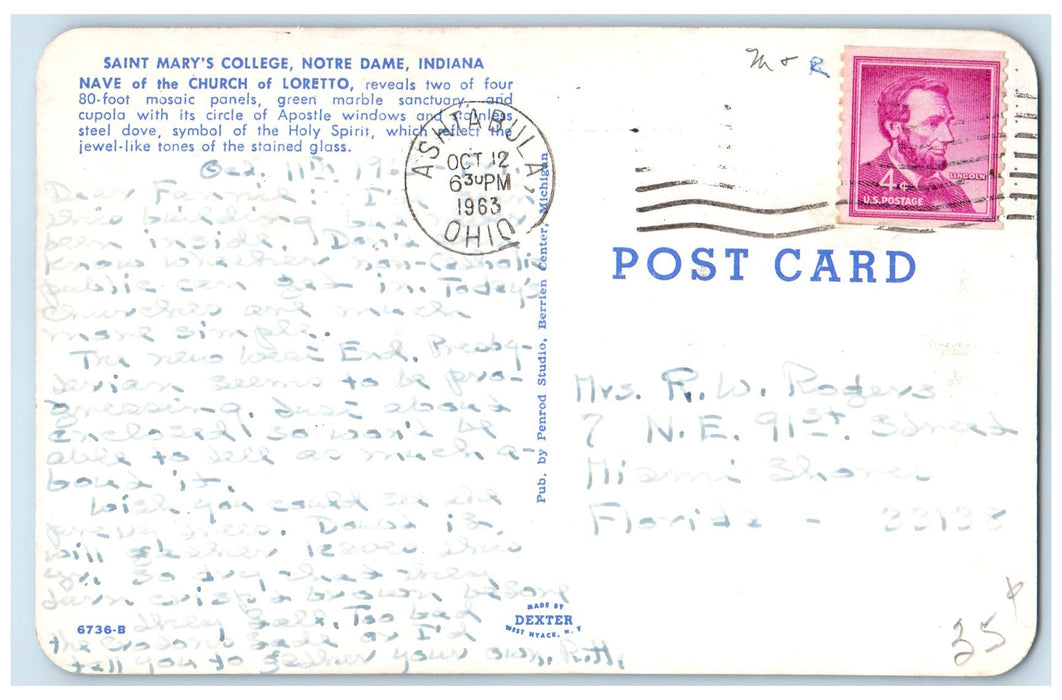 SAINT MARY'S COLLEGE, NOTRE DAME, INDIANA
NAVE of the CHURCH of LORETTO, reveals two of four
80-foot mosaic panels, green marble sanctuary and
cupola with its circle of Apostle windows and stainless
steel dove, symbol of the Holy Spirit, which reflect the
jewel-like tones of the stained glass.
Oct. 11th 19
Dear I'
this building
been inside. Don't
know whether non-Catholic
public can get in. Today's
churches are much
more simple.
The new West End. Presby-
terian seems to be pro-
gressing. Just about
enclosed, so won't be
able to tell as much a-
bout it.
Wish you could see the
trees. Doubt if
will gather leaves this
yr. So dry that they
turn crisp & brown before
they fall. Too bad
the crotons fade or I'd
tell you to gather your own. Ruth.
6736-B
Pub. by Penrod Studio, Berrien Center, Michigan
MADE BY
DEXTER
WEST NYACK, N. Y.
ASHTABULA,
OCT 12
6 30 PM
1963
OHIO
M + R
LINCOLN
4¢
U.S. POSTAGE
POST CARD
Mrs. R. W. Rogers
7 N.E. 91st. Street
Miami Shores
Florida - 33138
35¢